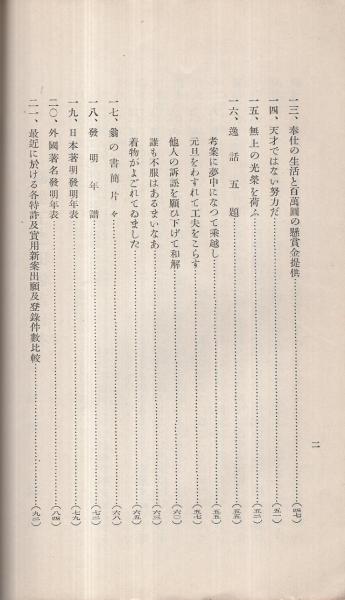 一三、奉仕の生活と百萬圓の懸賞金提供……(四七)
一四、天才ではない努力だ……(五一)
一五、無上の光榮を荷ふ……(五三)
一六、逸話五題……(五五)
考案に夢中になつて乘越し……(五五)
元旦をわすれて工夫をこらす……(五七)
他人の訴訟を願ひ下げて和解……(六〇)
誰も不服はあるまいなあ……(六三)
着物がよごれてゐました……(六五)
一七、翁の書簡片々……(六八)
一八、發明年譜……(七三)
一九、日本著明發明年表……(七九)
二〇、外國著名發明年表……(八四)
二一、最近に於ける各特許及實用新案出願及登錄件數比較……(九二)
二